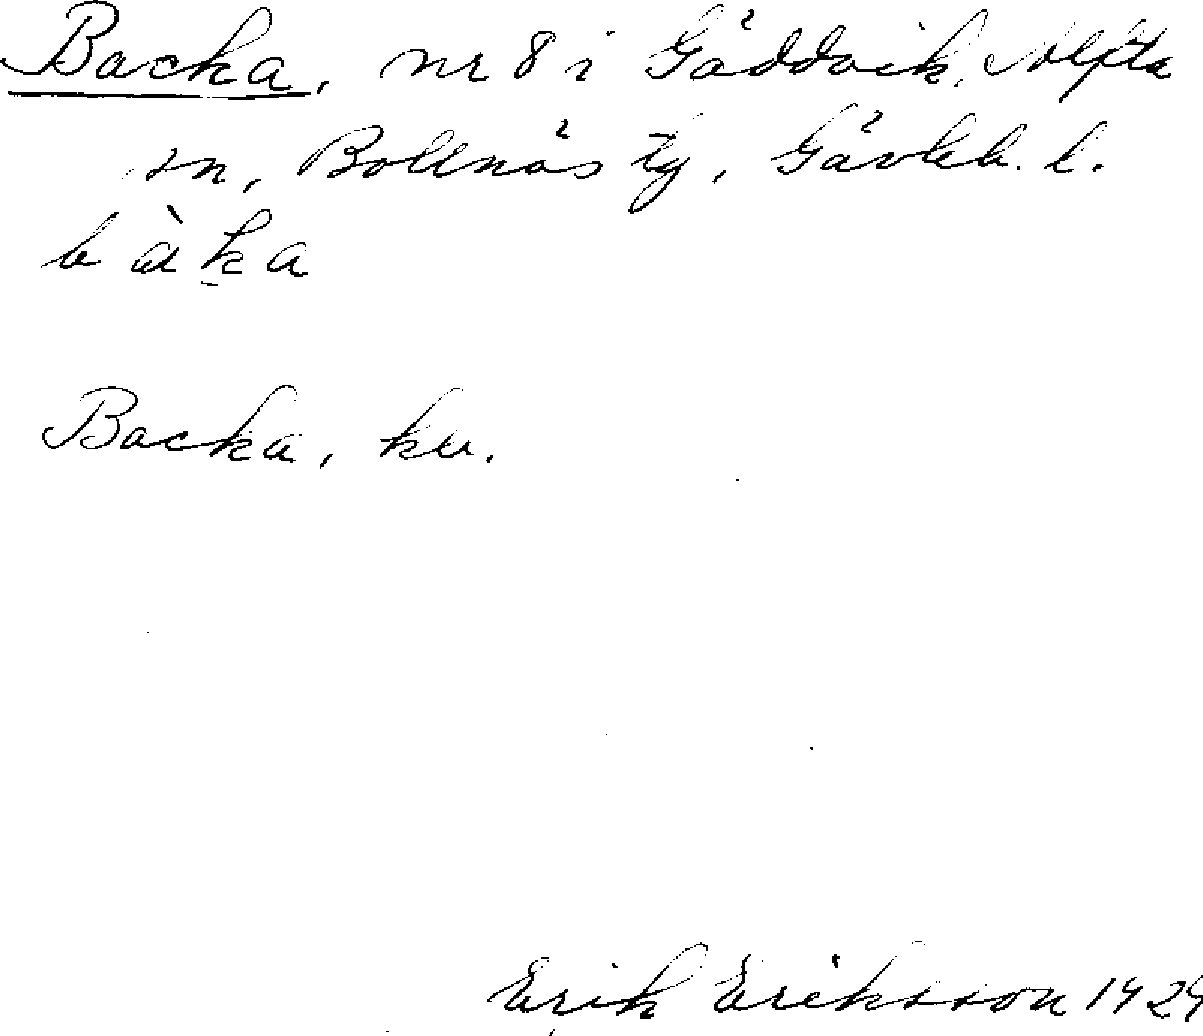 Backa, nr 8 i Gäddvik, Alfta
sn, Bollnäs tg, Gävleb. l.
bàka
Backa, ku.
Erik Eriksson 1924